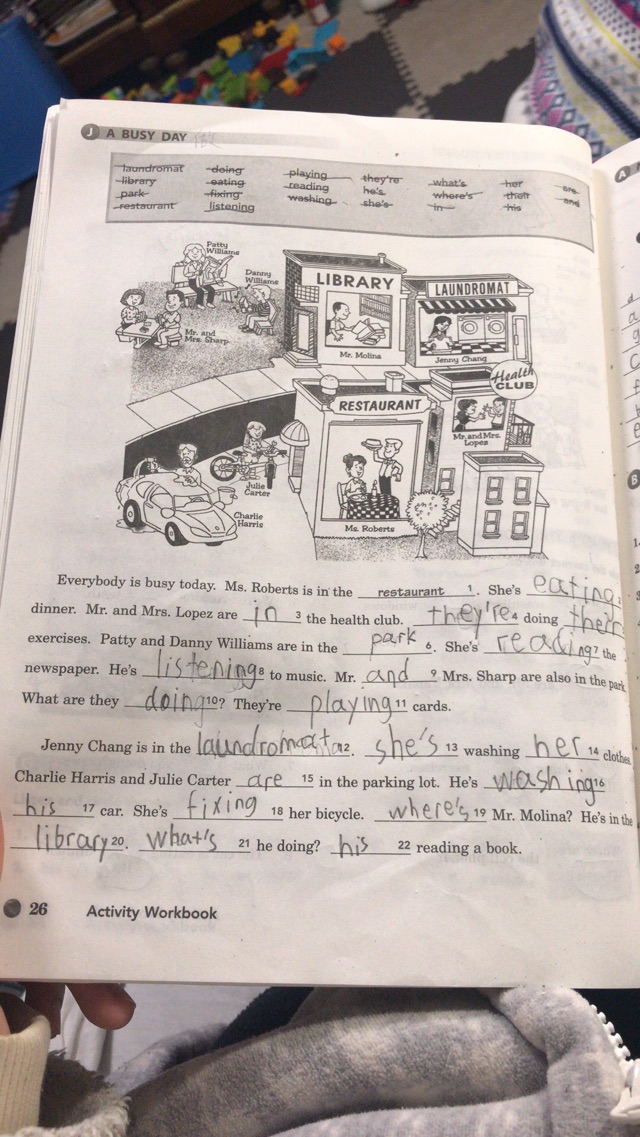 J A BUSY DAY
laundromat doing playing they're what's her are
library eating reading he's where's their and
park fixing washing she's in his
restaurant listening
Patty Williams
Danny Williams
Mr. and Mrs. Sharp
LIBRARY
Mr. Molina
LAUNDROMAT
Jenny Chang
Health CLUB
Mr. and Mrs. Lopez
RESTAURANT
Ms. Roberts
Julie Carter
Charlie Harris
Everybody is busy today. Ms. Roberts is in the restaurant 1. She's eating
dinner. Mr. and Mrs. Lopez are in 3 the health club. they're 4 doing their
exercises. Patty and Danny Williams are in the park 6. She's reading 7 the
newspaper. He's listening 8 to music. Mr. and 9 Mrs. Sharp are also in the park
What are they doing 10? They're playing 11 cards.
Jenny Chang is in the laundromata 12. she's 13 washing her 14 clothes
Charlie Harris and Julie Carter are 15 in the parking lot. He's washing 16
his 17 car. She's fixing 18 her bicycle. where's 19 Mr. Molina? He's in the
library 20. what's 21 he doing? his 22 reading a book.
26 Activity Workbook
A
B